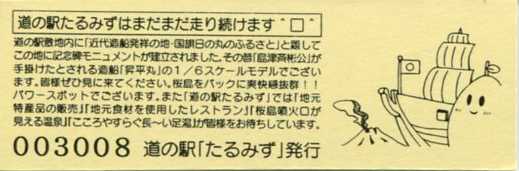 道の駅たるみずはまだまだ走り続けます＾□＾
道の駅敷地内に「近代造船発祥の地・国旗日の丸のふるさと」と題して
この地に記念碑モニュメントが建立されました。その昔「島津斉彬公」が
手掛けたとされる造船「昇平丸」の1/6スケールモデルでござい
ます。皆様ぜひ見に来てください。桜島をバックに爽快感抜群!!
パワースポットでございます。また「道の駅たるみず」では「地元
特産品の販売」「地元食材を使用したレストラン」「桜島噴火口が
見える温泉」「こころやすらぐ長～い足湯」が皆様をお待ちしています。
003008 道の駅「たるみず」発行